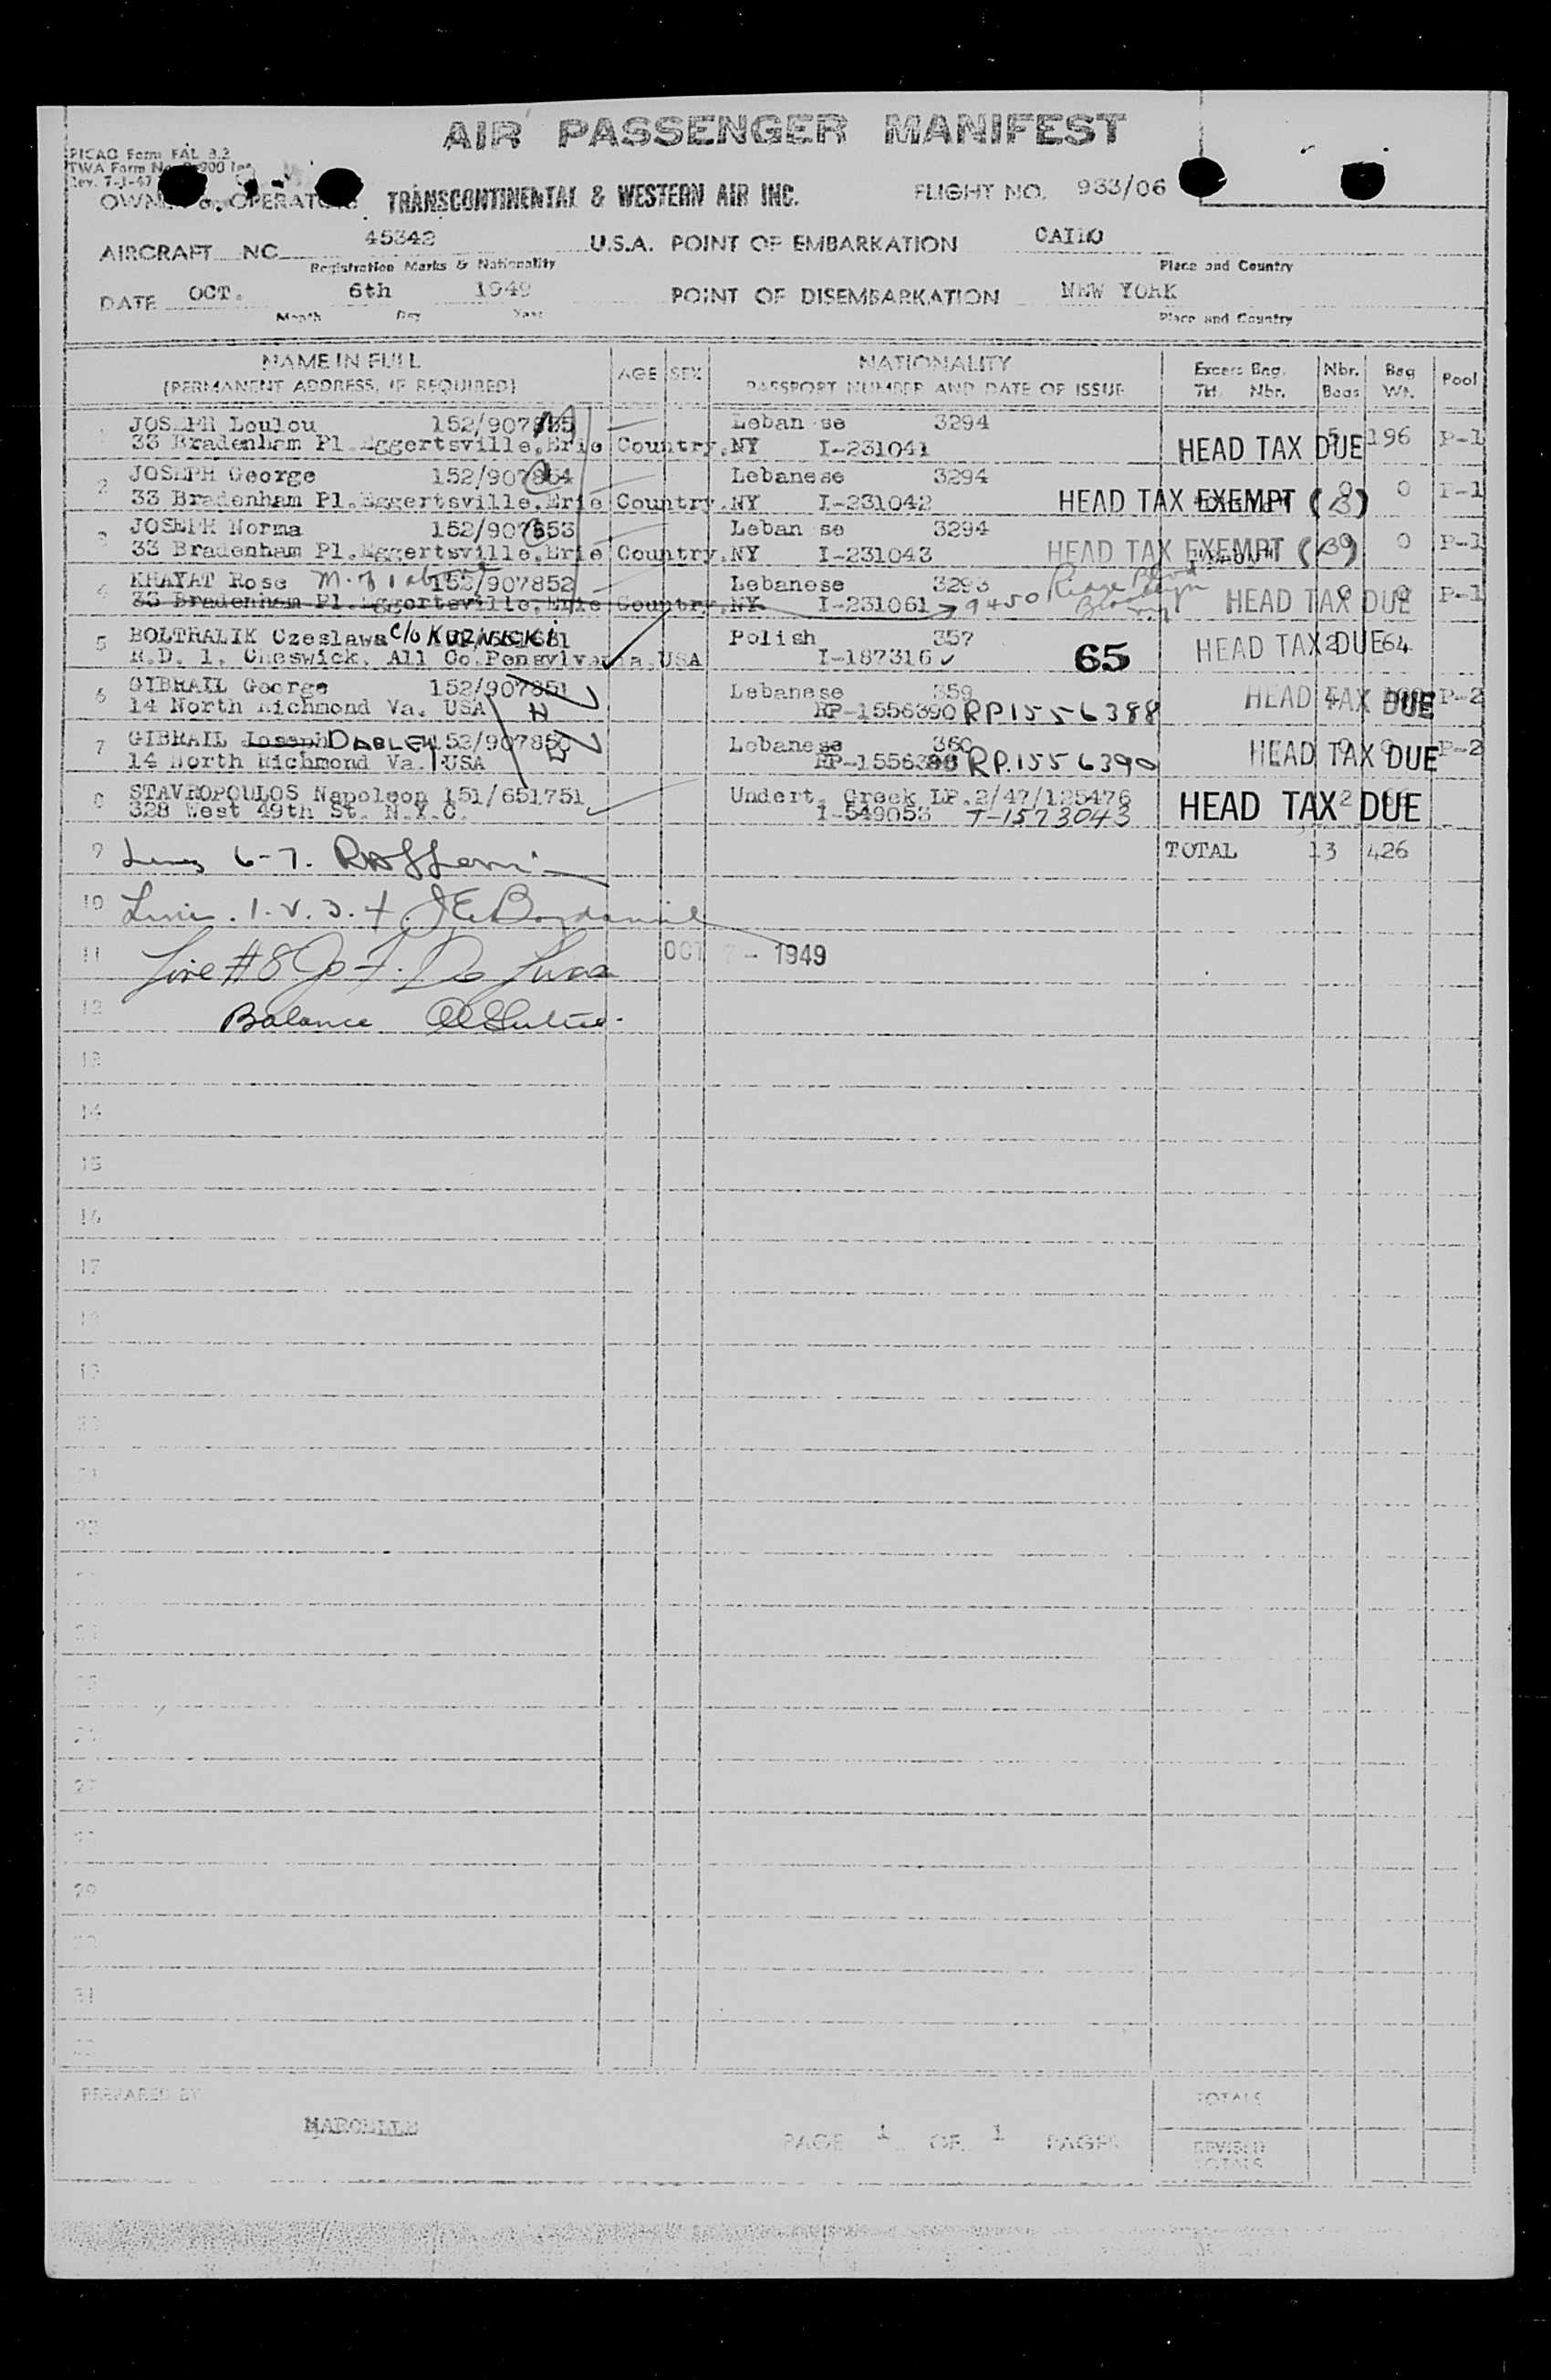 AIR PASSENGER MANIFEST
PICAO Form FAL 3.2
TWA Form No 900
Rev. 7-1-47
OWNER or OPERATOR TRANSCONTINENTAL & WESTERN AIR INC. FLIGHT NO. 933/06
AIRCRAFT NC 45342 U.S.A. POINT OF EMBARKATION CAIRO
Registration Marks & Nationality Place and Country
DATE OCT. 6th 1949 POINT OF DISEMBARKATION NEW YORK
Month Day Year Place and Country
NAME IN FULL AGE SEX NATIONALITY Excess Bag. Nbr. Bag Pool
(PERMANENT ADDRESS, IF REQUIRED) PASSPORT NUMBER AND DATE OF ISSUE Tkt. Nbr. Bags Wt.
JOSEPH Loulou Lebanese 3294 5 196 P-1
33 Bradenham Pl. Eggertsville, Erie Country, NY I-231041 HEAD TAX DUE
2 JOSEPH George Lebanese 3294 0 0 P-1
33 Bradenham Pl. Eggertsville, Erie Country, NY I-231042 HEAD TAX EXEMPT (3)
3 JOSEPH Norma Lebanese 3294 0 P-1
33 Bradenham Pl. Eggertsville, Erie Country, NY I-231043 HEAD TAX EXEMPT (3)
4 KHAYAT Rose 152/907852 Lebanese 3293 P-1
33 Bradenham Pl. Eggertsville, Erie Country, NY I-231061 9450 Ridge Blvd Brooklyn HEAD TAX DUE
5 BOLTRALIK Czeslawa c/o KURNICKI Polish 357 2 64
R.D. 1, Cheswick, All Co. Pensylvania USA I-187316 65 HEAD TAX DUE
6 GIBRAIL George 152/907851 Lebanese 359 P-2
14 North Richmond Va. USA RP-1556390 RP1556388 HEAD TAX DUE
7 GIBRAIL Joseph 152/907850 Lebanese 360 P-2
14 North Richmond Va. USA RP.1556390 HEAD TAX DUE
8 STAVROPOULOS Napoleon 151/651751 Undert. Greek LP.2/47/125476 2
328 West 49th St. N.Y.C. I-549053 T-1573043 HEAD TAX DUE
9 Lines 6-7. TOTAL 13 426
10
11 Line #8 OCT 7 - 1949
12 Balance
13
14
15
16
17
18
19
20
21
22
27
29
31
PREPARED BY TOTALS
MARCELLE
PAGE 1 OF 1 PAGES REVISED
TOTALS